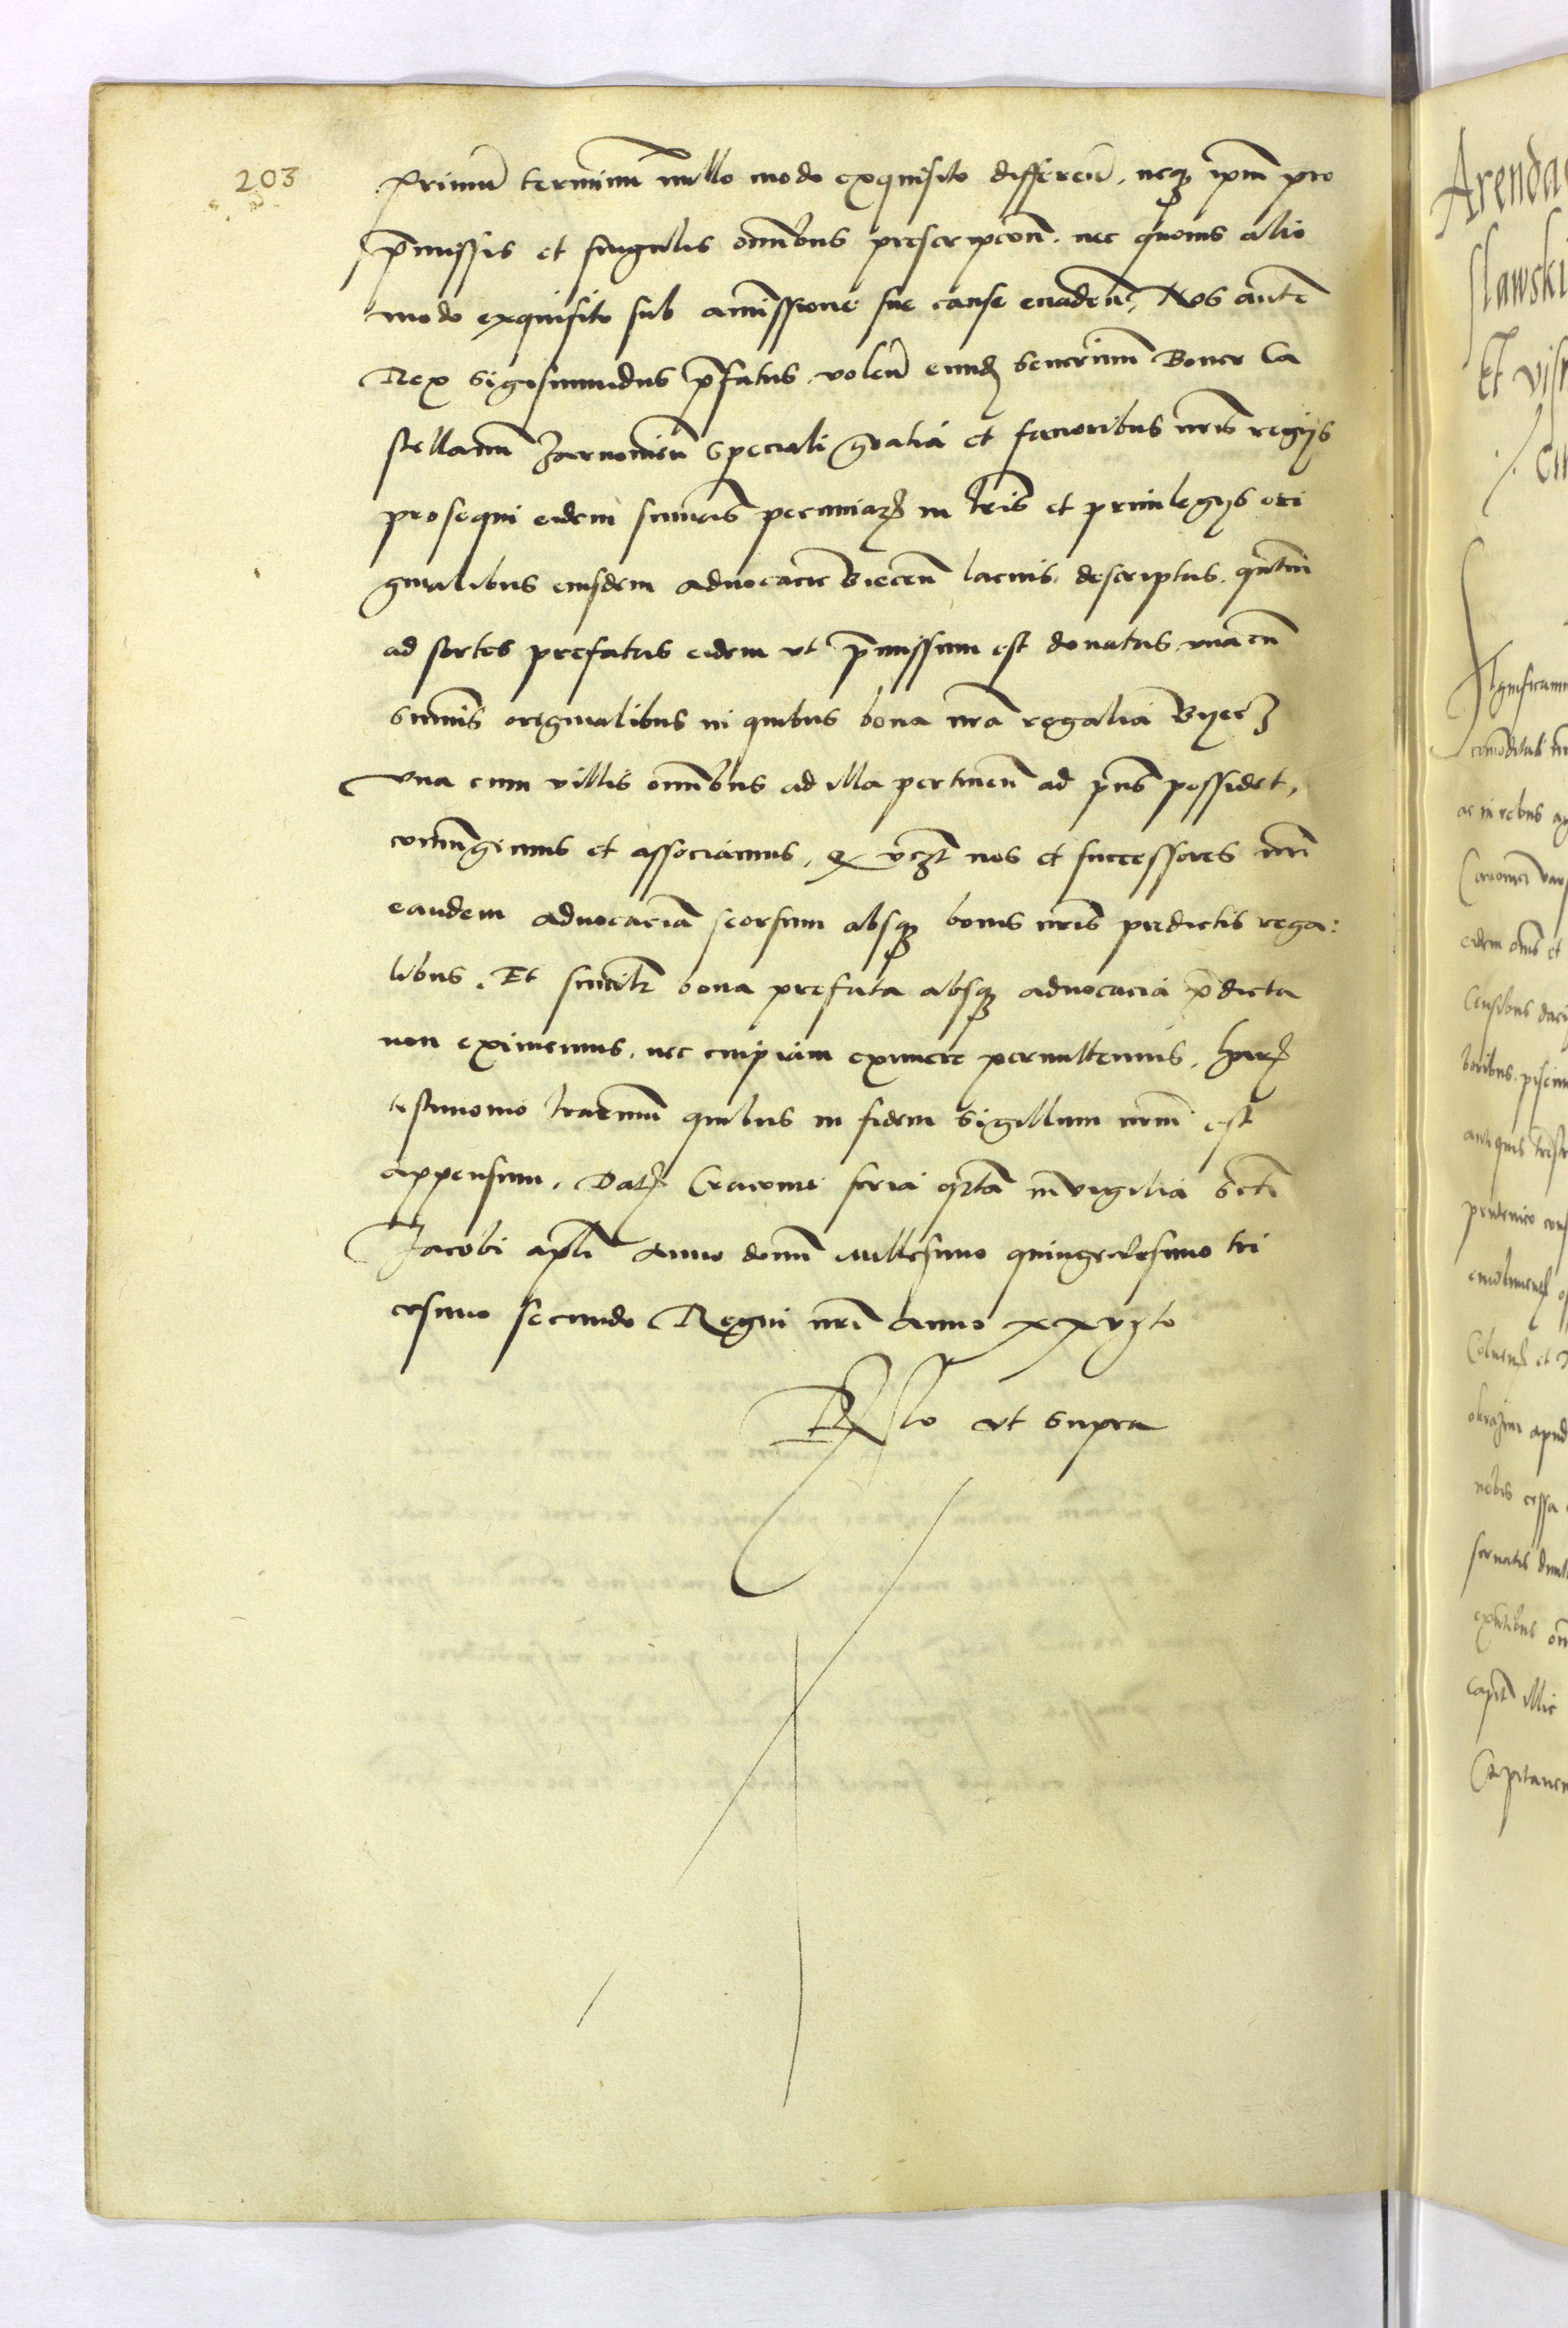 203
Primu terminu nullo modo exquisito differen. neq ipm pro
pmissis et singulis omibus prescripcon. nec quouis alio
modo exquisito sub amissione sue cause euaden, Nos aute
Rex Sigismundus pfatus. volen eund Seuerinum Boner Ca
stellanu Zarnouien speciali gratia et fauoribus nris regijs
prosequi eidem summis pecuniar in lris et priuilegijs ori
ginalibus eiusdem aduocacie Biecen lacius descriptas. quatum
ad sortes prefatas eidem vt pmissum est donatas. vna cu
summis originalibus in quibus bona nra regalia Byecz
vna cum villis omibus ad illa pertinen ad pns possidet,
coniungimus et associamus, q vczt nos et successores nri
eandem aduocaciam seorsum absq bonis nris predictis rega:
libus. Et similr bona prefata absq aduocacia pdicta
non eximemus. nec cuipiam eximere permittemus. Har
testimonio literarum quibus in fidem Sigillum nrm est
appensum. Dat Cracouie feria qrta in vigilia scti
Jacobi apli Anno domi Millesimo quingentesimo tri
cesimo secundo Regni nri anno xxvjto
Rlo vt supra
Arenda
slawski
Et
comoditati
ac in rebus
eidem oms et
Censibus
antiquis
apud
nobis
illic